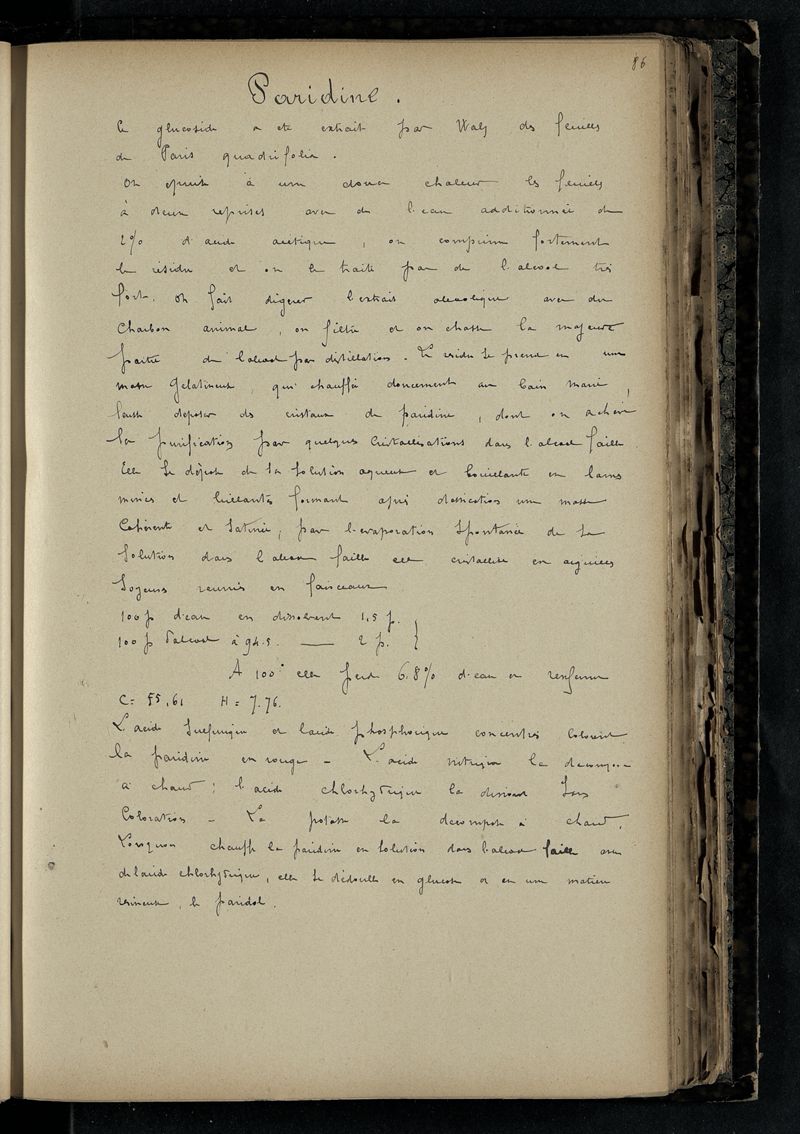 86
Paridine.
Ce glucoside a été extrait par Walz des feuilles
de Paris quadrifolia.
On épuise à une douce chaleur les feuilles
à deux reprises avec de l'eau additionnée de
2% d'acide acétique, on comprime fortement
le résidu et on le traite par de l'alcool très
fort. On fait digérer l'extrait alcoolique avec du
Charbon animal, on filtre et on chasse la majeure
partie de l'alcool par distillation. Le résidu se prend en une
masse gelatineuse, qui chauffé doucement au bain marie,
laisse déposer des cristaux de paridine, dont on achève
la purification par quelques cristallisations dans l'alcool faible
Elle se dépose de sa solution aqueuse et bouillante en lames
minces et brillantes formant après dessication une masse
Cohérente et satinée; par l'évaporation spontanée de sa
Solution dans l'alcool faible elle cristallise en aiguilles
Soyeuses réunies en faisceaux
100 p d'eau en dissolvent 1,5 p.
100 p d'alcool à 94.5 — 2 p.
A 100° elle perd 6.8% d'eau et renferme
C = 55,61 H = 7.76.
L'acide sulfurique et l'acide phosphorique concentrés colorent
la paridine en rouge - L'acide nitrique la décompose
à chaud; l'acide chlorhydrique la dissout sans
Coloration - La potasse la décompose à chaud.
Lorsqu'on chauffe la paridine en solution dans l'alcool faible avec
de l'acide chlorhydrique, elle se dédouble en glucose et en une matière
résineuse, le paridol.